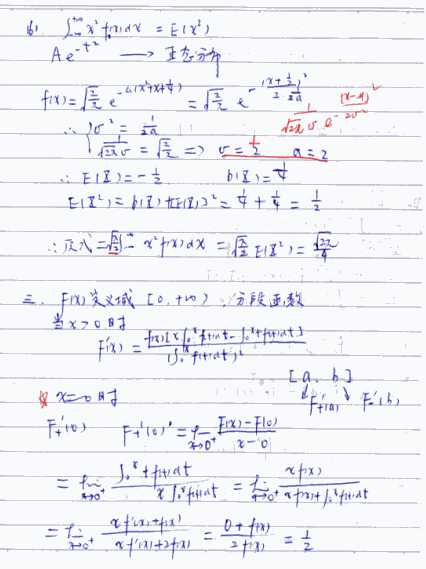 (6). ∫₋∞^{+∞} x² f(x) dx = E(X²)
A e^{-t²} ⟶ 正态分布
f(x) = √(2/π) e^{-a(x²+x+1/4)} = √(2/π) e^{-(x+1/2)²/(2·1/(2a))}
1/(√(2π) σ) e^{-(x-μ)²/(2σ²)}
∴ { σ² = 1/(2a)
1/(√(2π) σ) = √(2/π) ⇒ σ = 1/2 a = 2
∴ E(X) = -1/2 D(X) = 1/4
E(X²) = D(X) + [E(X)]² = 1/4 + 1/4 = 1/2
∴ 原式 = √(π/2) ∫ x² f(x) dx = √(π/2) E(X²) = √(2π)/4
三. F(x) 定义域 [0, +∞) 分段函数
当 x > 0 时
F'(x) = f(x)[x∫₀ˣ f(t)dt - ∫₀ˣ t f(t)dt] / (∫₀ˣ f(t)dt)²
[a, b]
F₊'(a) F₋'(b)
x = 0 时
F₊'(0) F₊'(0) = lim_{x→0⁺} (F(x) - F(0))/(x - 0)
= lim_{x→0⁺} ∫₀ˣ t f(t)dt / (x∫₀ˣ f(t)dt) = lim_{x→0⁺} x f(x) / (x f(x) + ∫₀ˣ f(t)dt)
= lim_{x→0⁺} (x f'(x) + f(x)) / (x f'(x) + 2f(x)) = (0 + f(x)) / (2f(x)) = 1/2